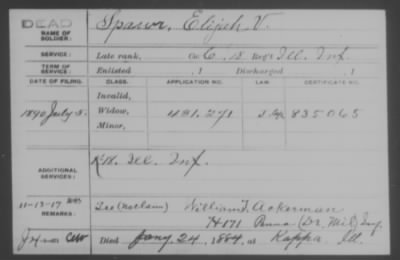 DEAD
NAME OF SOLDIER: Spawr, Elijah V.
SERVICE: Late rank, Co. C, 18 Reg't Ill. Inf.
TERM OF SERVICE: Enlisted , 1 Discharged , 1
DATE OF FILING. CLASS. APPLICATION NO. LAW. CERTIFICATE NO.
Invalid,
1890 July 5. Widow, 481.271 835065
Minor,
ADDITIONAL SERVICES: K 18. Ill. Inf.
11-13-17
REMARKS: William J. Ackerman
Penna.
Died Jany. 24, 1884, at Kappa, Ill.